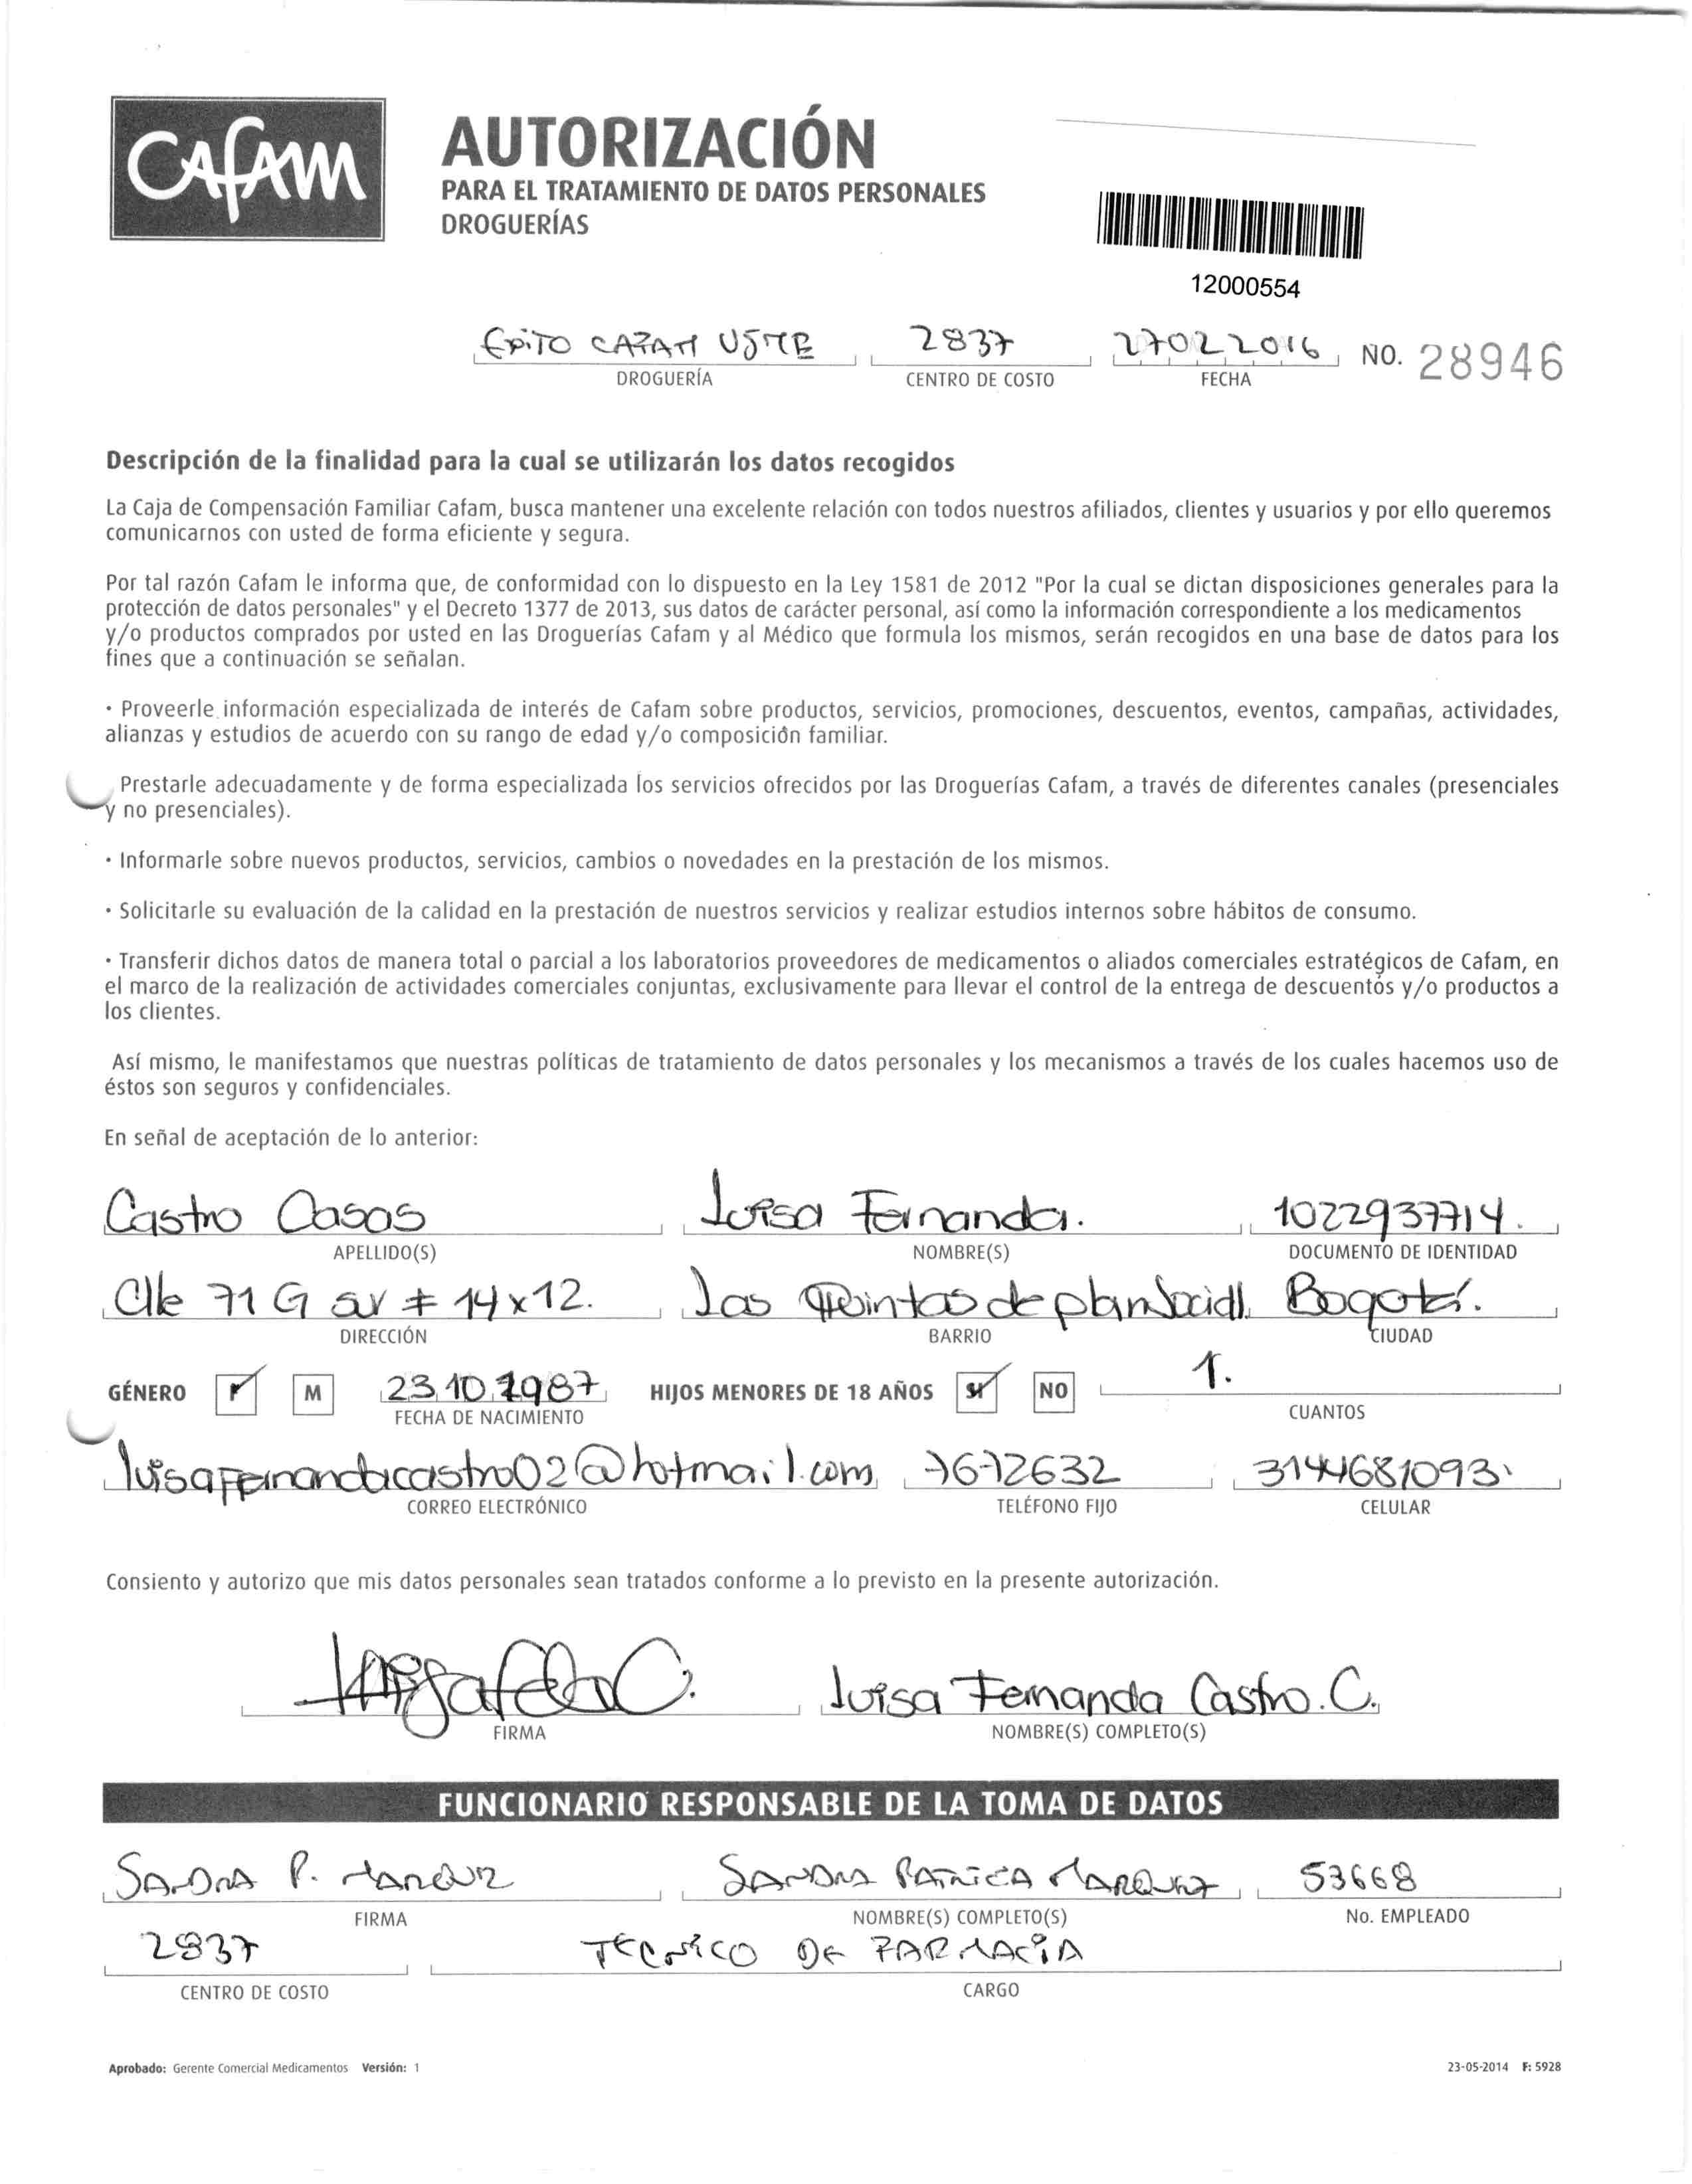 CAFAM
AUTORIZACIÓN
PARA EL TRATAMIENTO DE DATOS PERSONALES
DROGUERÍAS
12000554
EXITO CAFAM USME 2837 27022016 NO. 28946
DROGUERÍA CENTRO DE COSTO FECHA
Descripción de la finalidad para la cual se utilizarán los datos recogidos
La Caja de Compensación Familiar Cafam, busca mantener una excelente relación con todos nuestros afiliados, clientes y usuarios y por ello queremos
comunicarnos con usted de forma eficiente y segura.
Por tal razón Cafam le informa que, de conformidad con lo dispuesto en la Ley 1581 de 2012 "Por la cual se dictan disposiciones generales para la
protección de datos personales" y el Decreto 1377 de 2013, sus datos de carácter personal, así como la información correspondiente a los medicamentos
y/o productos comprados por usted en las Droguerías Cafam y al Médico que formula los mismos, serán recogidos en una base de datos para los
fines que a continuación se señalan.
· Proveerle información especializada de interés de Cafam sobre productos, servicios, promociones, descuentos, eventos, campañas, actividades,
alianzas y estudios de acuerdo con su rango de edad y/o composición familiar.
Prestarle adecuadamente y de forma especializada los servicios ofrecidos por las Droguerías Cafam, a través de diferentes canales (presenciales
y no presenciales).
· Informarle sobre nuevos productos, servicios, cambios o novedades en la prestación de los mismos.
· Solicitarle su evaluación de la calidad en la prestación de nuestros servicios y realizar estudios internos sobre hábitos de consumo.
· Transferir dichos datos de manera total o parcial a los laboratorios proveedores de medicamentos o aliados comerciales estratégicos de Cafam, en
el marco de la realización de actividades comerciales conjuntas, exclusivamente para llevar el control de la entrega de descuentos y/o productos a
los clientes.
Así mismo, le manifestamos que nuestras políticas de tratamiento de datos personales y los mecanismos a través de los cuales hacemos uso de
éstos son seguros y confidenciales.
En señal de aceptación de lo anterior:
Castro Casas Luisa Fernanda. 1022937714.
APELLIDO(S) NOMBRE(S) DOCUMENTO DE IDENTIDAD
Clle 71 G sur # 14x12. Las Quintas de plan Social Bogotá.
DIRECCIÓN BARRIO CIUDAD
GÉNERO F M 23 10 1987 HIJOS MENORES DE 18 AÑOS SI NO 1.
FECHA DE NACIMIENTO CUANTOS
luisafernandacastro02@hotmail.com 7672632 3144681093
CORREO ELECTRÓNICO TELÉFONO FIJO CELULAR
Consiento y autorizo que mis datos personales sean tratados conforme a lo previsto en la presente autorización.
Luisa Fernanda Castro. C.
FIRMA NOMBRE(S) COMPLETO(S)
FUNCIONARIO RESPONSABLE DE LA TOMA DE DATOS
SANDRA P. MARQUEZ SANDRA PATRICIA MARQUEZ 53668
FIRMA NOMBRE(S) COMPLETO(S) No. EMPLEADO
2837 TECNICO DE FARMACIA
CENTRO DE COSTO CARGO
Aprobado: Gerente Comercial Medicamentos Versión: 1 23-05-2014 F: 5928